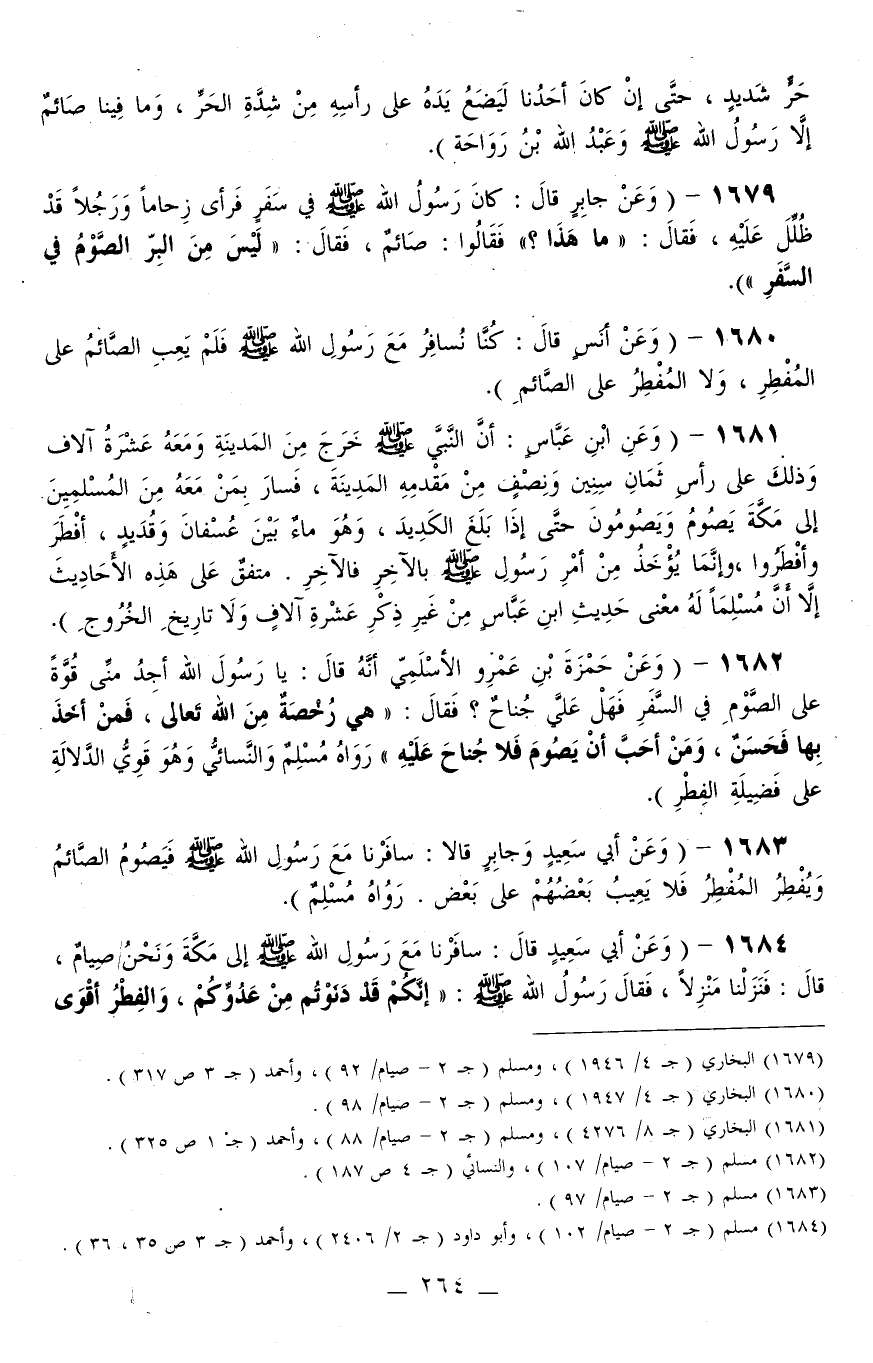 حَرٍّ شَديدٍ ، حتَّى إنْ كانَ أحَدُنا لَيَضَعُ يَدَهُ على رأسِهِ مِنْ شِدَّةِ الحَرِّ ، وَما فِينا صَائمٌ
إلَّا رَسُولُ الله ﷺ وَعَبْدُ الله بْنُ رَوَاحَة ).
١٦٧٩ – ( وَعَنْ جابِرٍ قالَ : كانَ رَسُولُ الله ﷺ في سَفَرٍ فَرأى زِحاماً وَرَجُلاً قَدْ
ظُلِّلَ عَلَيْهِ ، فَقالَ : « ما هَذَا ؟» فَقَالُوا : صَائمٌ ، فَقالَ : « لَيْسَ مِنَ البِرّ الصَّوْمُ في
السَّفَرِ »).
١٦٨٠ – ( وَعَنْ أنَسٍ قالَ : كُنَّا نُسافِرُ مَعَ رَسُولِ الله ﷺ فَلَمْ يَعِبِ الصَّائمُ على
المُفْطِرِ ، وَلا المُفْطِرُ على الصَّائمِ ).
١٦٨١ – ( وَعَنِ ابْنِ عَبَّاسٍ : أنَّ النَّبيَّ ﷺ خَرَجَ مِنَ المَدينَةِ وَمَعَهُ عَشْرَةُ آلاف
وَذلكَ على رأسِ ثَمَانِ سِنِين وَنِصْفٍ مِنْ مَقْدمِهِ المَدِينَةَ ، فَسارَ بِمَنْ مَعَهُ مِنَ المُسْلِمِينَ
إلى مَكَّةَ يَصُومُ وَيَصُومُونَ حتَّى إذَا بَلَغَ الكَدِيدَ ، وَهُوَ ماءٌ بَيْنَ عُسْفانَ وَقُدَيدٍ ، أفْطَرَ
وأفْطَرُوا ،وإنَّمَا يُؤْخَذُ مِنْ أمْرِ رَسُولِ ﷺ بالآخِرِ فالآخِرِ . متفقٌ عَلى هَذِه الأَحَادِيثَ
إلَّا أَنَّ مُسْلِمَاً لَهُ معْنى حَدِيثِ ابنِ عَبَّاسٍ مِنْ غَيرِ ذِكْرِ عَشْرةِ آلافٍ وَلَا تارِيخِ الخُرُوجِ ).
١٦٨٢ – ( وَعَنْ حَمْزَةَ بْنِ عَمْرٍو الأسْلَمِيّ أنَّهُ قالَ : يا رَسُولَ الله أجِدُ منِّى قُوَّةً
على الصَّوْمِ في السَّفَرِ فَهَلْ عَلَيَّ جُناحٌ ؟ فَقالَ : « هي رُخْصَةٌ مِنَ الله تَعالى ، فَمنْ أخَذَ
بِها فَحَسَنٌ ، وَمَنْ أحَبَّ أنْ يَصُومَ فَلا جُناحَ عَلَيْهِ » رَوَاهُ مُسْلِمٌ وَالنَّسائيُّ وَهُوَ قَوِيُّ الدَّلالَةِ
على فَضِيلَةِ الفِطْرِ ).
١٦٨٣ – ( وَعَنْ أبي سَعِيدٍ وَجابِرٍ قالا : سافَرْنا مَعَ رَسُولِ الله ﷺ فَيَصُومُ الصَّائمُ
وَيُفْطِرُ المُفْطِرُ فَلا يَعِيبُ بَعْضُهُمْ على بَعْض . رَوُاهُ مُسْلِمٌ ).
١٦٨٤ – ( وَعَنْ أبي سَعِيدٍ قالَ : سافَرْنا مَعَ رَسُولِ الله ﷺ إلى مَكَّةَ وَنَحْنُ صِيامٌ ،
قالَ : فَنَزَلْنا مَنْزِلاً ، فَقالَ رَسُولُ الله ﷺ : « إنَّكُمْ قَدْ دَنَوْتُم مِنْ عَدُوِّكُمْ ، وَالفِطْرُ أقْوَى
(١٦٧٩) البخاري ( جـ ٤/ ١٩٤٦ ) ، ومسلم ( جـ ٢ – صيام/ ٩٢ ) ، وأحمد ( جـ ٣ ص ٣١٧ ) .
(١٦٨٠) البخاري ( جـ ٤/ ١٩٤٧ ) ، ومسلم ( جـ ٢ – صيام/ ٩٨ ) .
(١٦٨١) البخاري ( جـ ٨/ ٤٢٧٦ ) ، ومسلم ( جـ ٢ – صيام/ ٨٨ ) ، وأحمد ( جـ ١ ص ٣٢٥ ) .
(١٦٨٢) مسلم ( جـ ٢ – صيام/ ١٠٧ ) ، والنسائي ( جـ ٤ ص ١٨٧ ) .
(١٦٨٣) مسلم ( جـ ٢ – صيام/ ٩٧ ) .
(١٦٨٤) مسلم ( جـ ٢ – صيام/ ١٠٢ ) ، وأبو داود ( جـ ٢/ ٢٤٠٦ ) ، وأحمد ( جـ ٣ ص ٣٥ ، ٣٦ ) .
– ٢٦٤ –